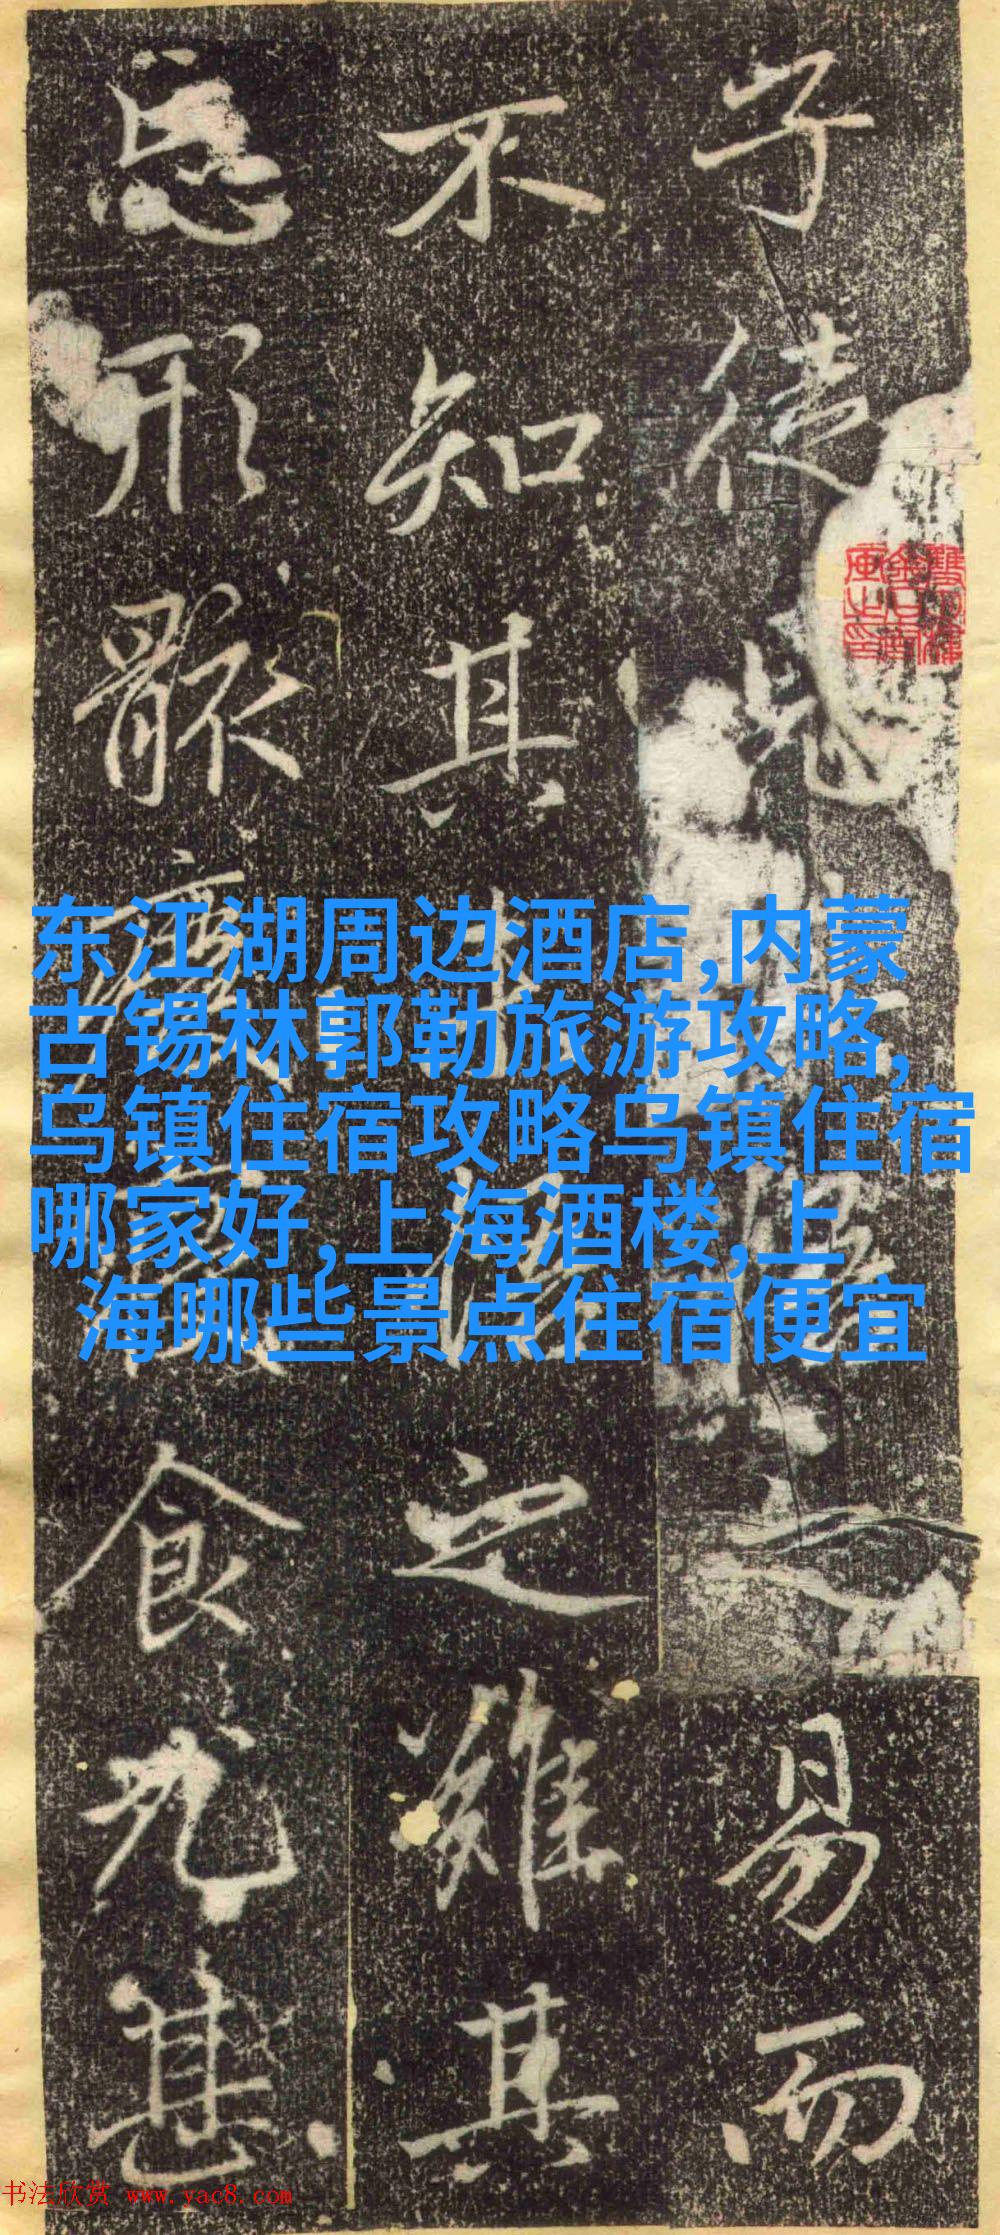 子徒見之易而
不知其未得之難其
忘形骸廢食甚
东江湖周边酒店,内蒙
古锡林郭勒旅游攻略,
乌镇住宿攻略乌镇住宿
哪家好,上海酒楼,上
海哪些景点住宿便宜
书法欣赏 www.yac8.com